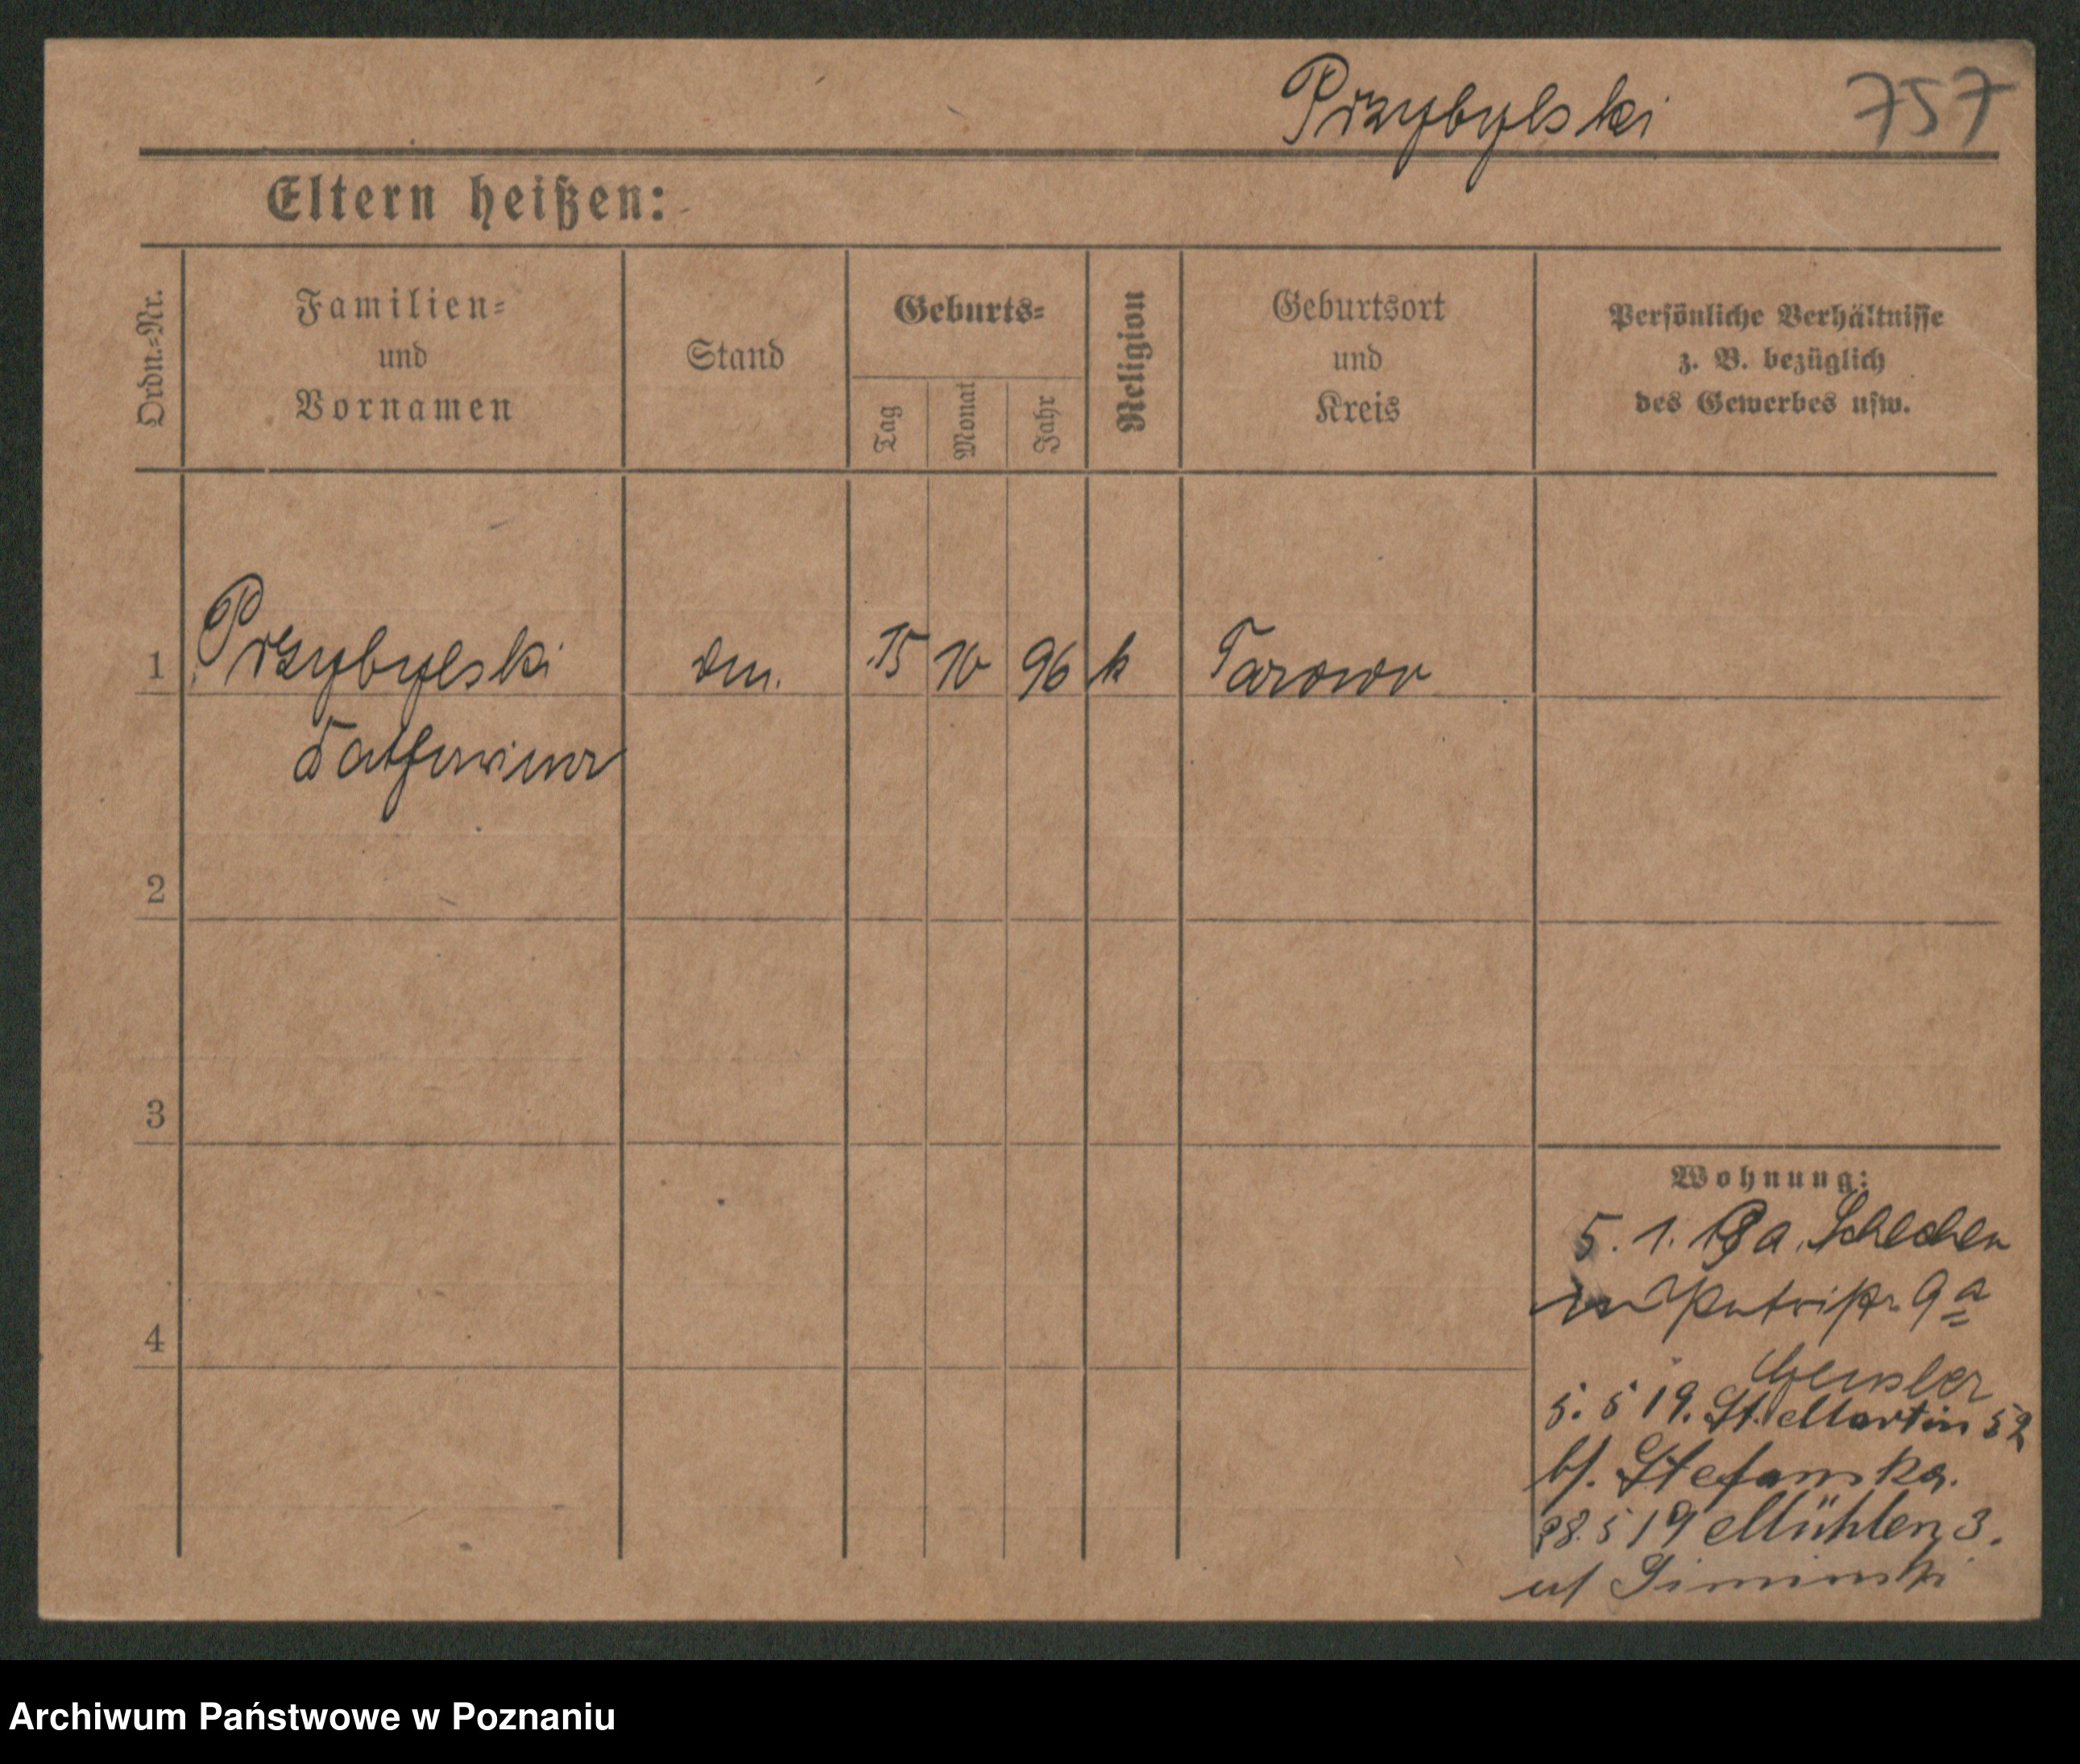 Przybylski 757
Eltern heißen:
Ordn.-Nr.
Familien-
und
Vornamen
Stand
Geburts-
Tag
Monat
Jahr
Religion
Geburtsort
und
Kreis
Persönliche Verhältnisse
z. B. bezüglich
des Gewerbes usw.
1 Przybylski 15 10 96 k Tarowo
Katharina
2
3
4
Wohnung:
5. 1. 18 a.
9a
5. 5 19. St. Martin 52
b/. Stefanska.
28. 5 19 Mühlen 3.
Archiwum Państwowe w Poznaniu